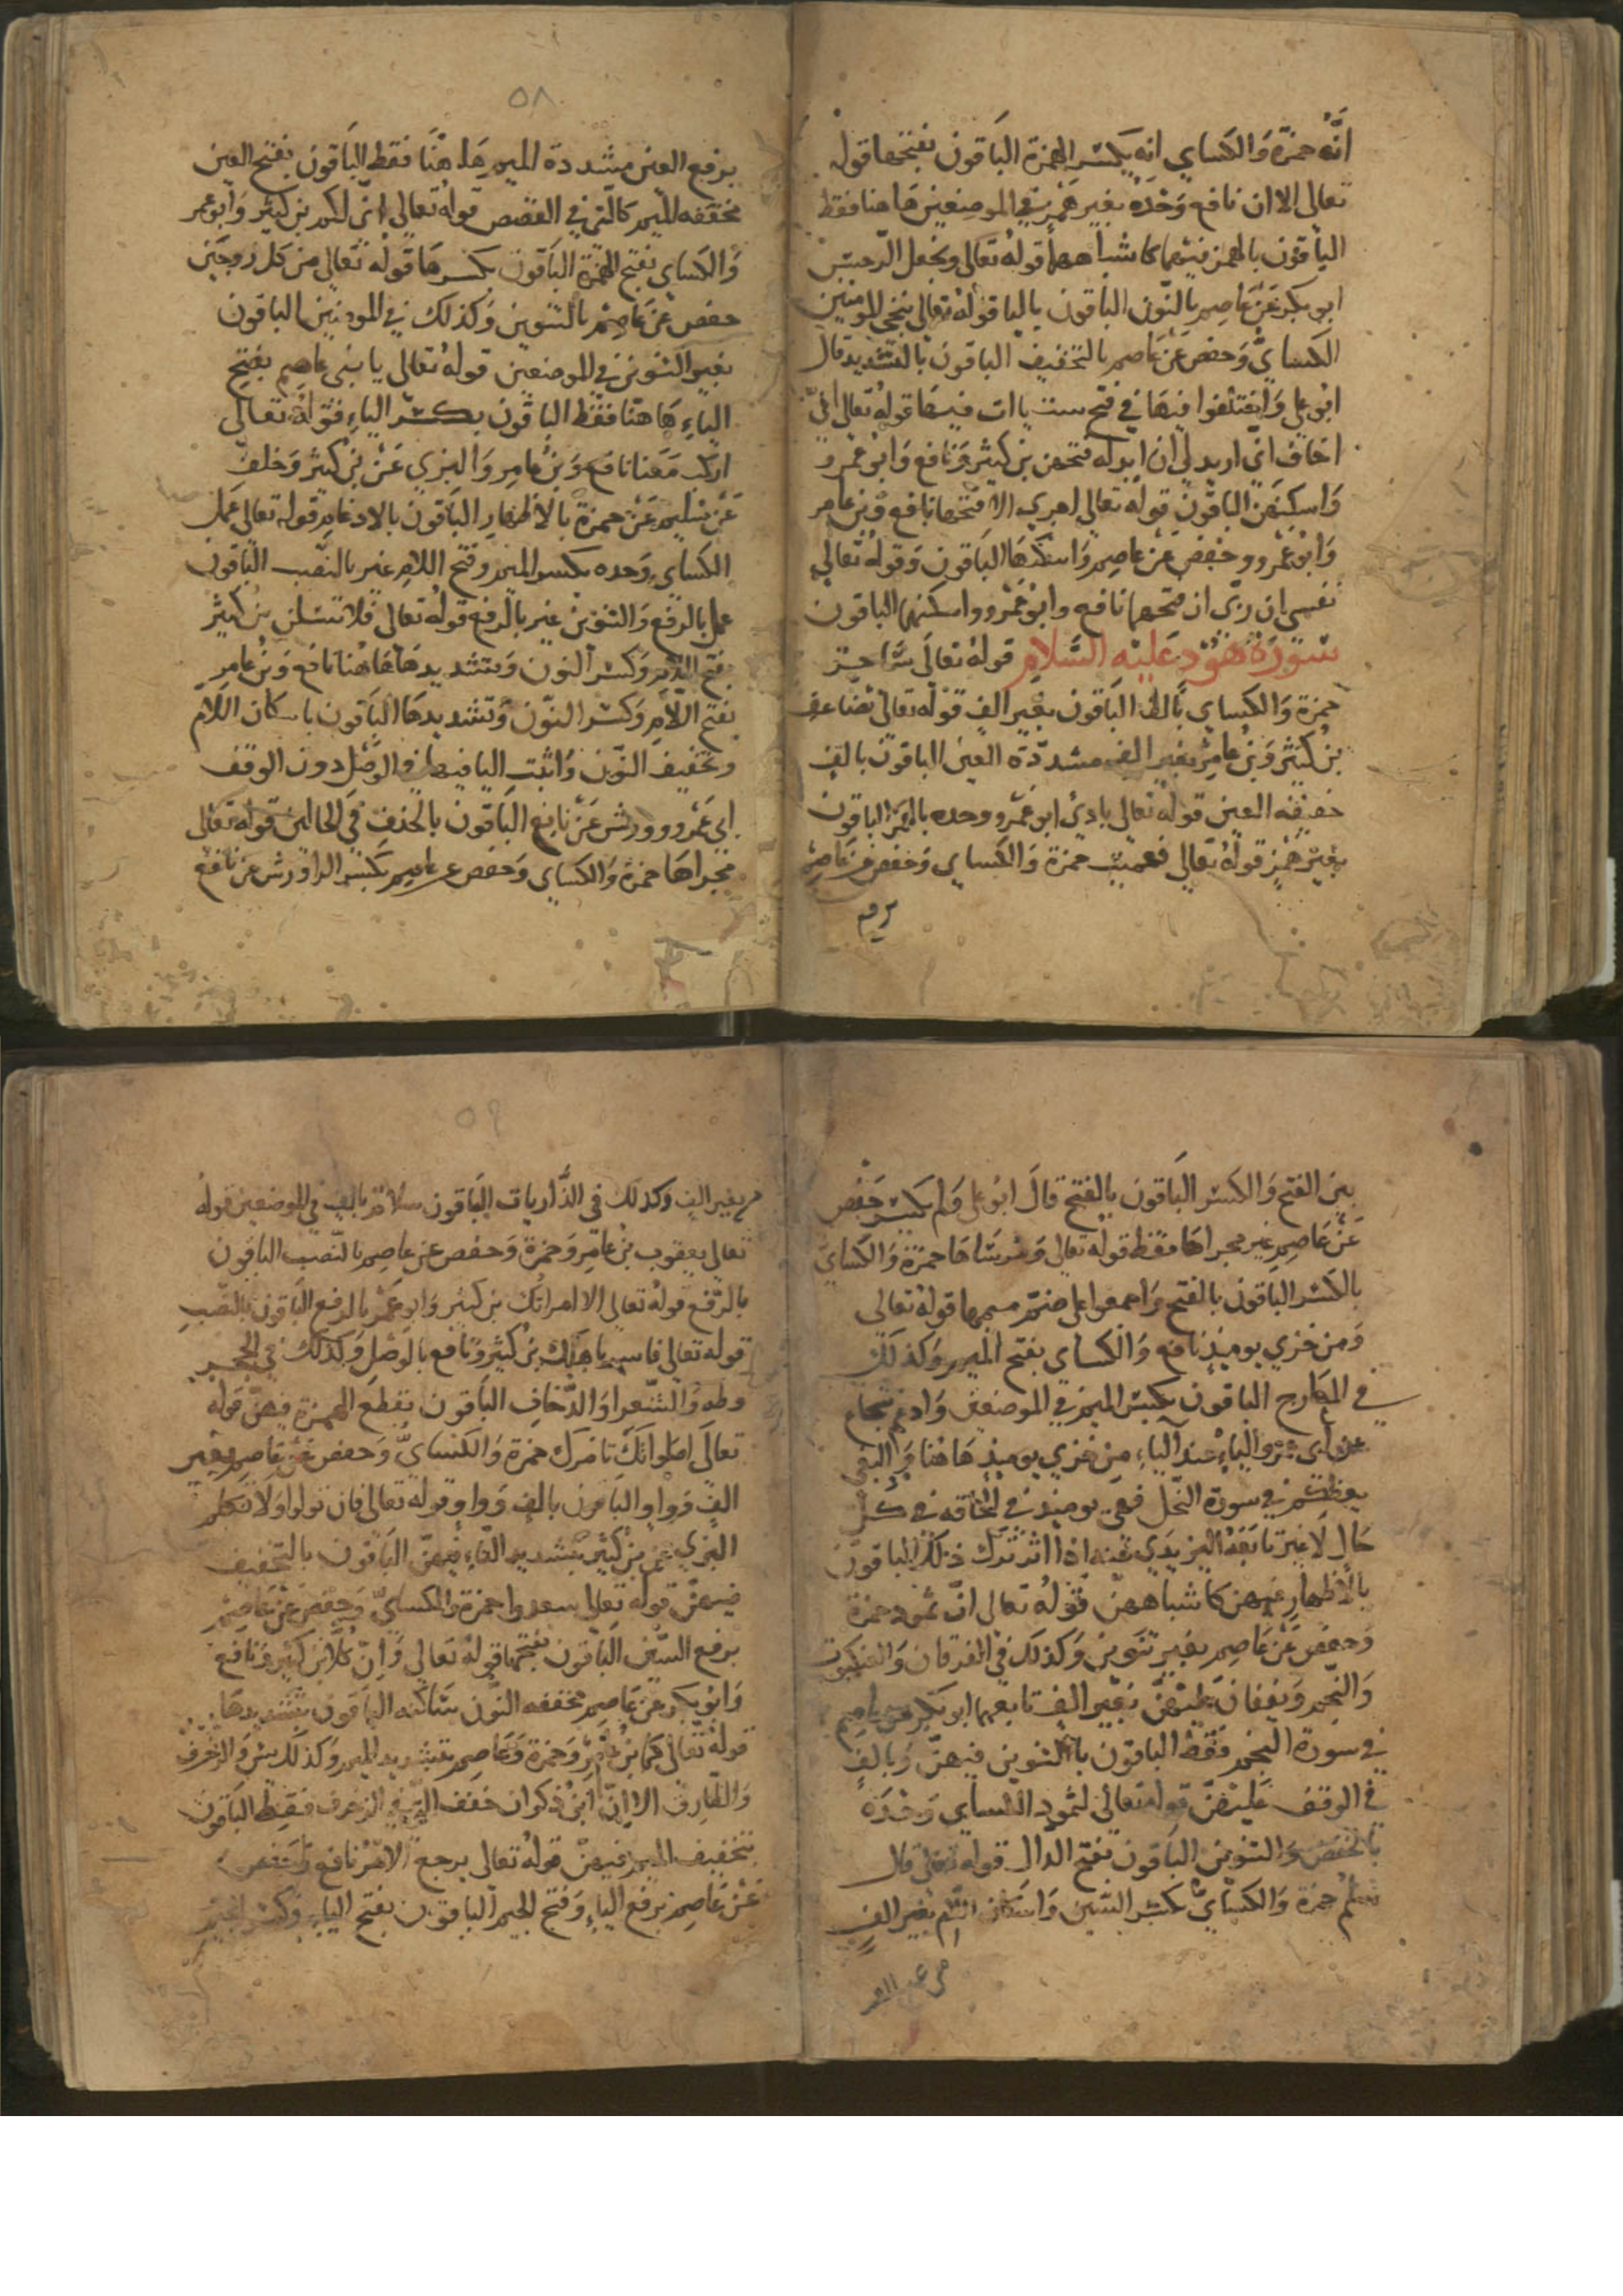 انّه حمزة والكساي انه بكسر الهمزة الباقون بفتحها قوله
تعالى الاان نافع وحده بغير همز في الموضعين هاهنا فقط
الباقون بالهمز فيهما كاشباههما قوله تعالى ونجعل الرجس
ابو بكر عن عاصم بالنّون الباقون باليا قوله تعالى ننجى المومنين
الكسايّ وحفص عن عاصم بالتخفيف الباقون بالتشديد قال
ابو علي واختلفوا فيها في فتح ست ياات فيها قوله تعالى انّي
اخاف انّي اريد لي ان ابدله فتحهن بن كثير ونافع وابو عمرو
واسكنهن الباقون قوله تعالى اجري الا فتحها نافع وبن عامر
وابو عمرو وحفص عن عاصم واسكنها الباقون وقوله تعالى
نفسي ان ربّى ان فتحهما نافع وابو عمرو واسكنهما الباقون
سورة هود عليه السلام قوله تعالى ساحر
حمزة والكساي بالف الباقون بغير الف قوله تعالى يضاعف
بن كثير وبن عامر بغير الف مشددة العين الباقون بالف
خفيفه العين قوله تعالى بادى ابو عمرو وحده بالهمز الباقون
بغير همز قوله تعالى فعميت حمزة والكساي وحفص عن عاصم
برفع
٥٨
برفع العين مشددة الميم هاهنا فقط الباقون بفتح العين
مخففه الميم كالّتى في القصص قوله تعالى انّى لكم بن كثير وابو عمر
والكساي بفتح الهمزة الباقون بكسرها قوله تعالى من كل زوجين
حفص عن عاصم بالتنوين وكذلك في المومنين الباقون
بغير التنوين في الموضعين قوله تعالى يابنى عاصم بفتح
الياء هاهنا فقط الباقون بكسر الياء قوله تعالى
اركب معنا نافع وبن عامر والبزي عن بن كثير وخلف
عن سليم عن حمزة بالاظهار الباقون بالادغام قوله تعالى عمل
الكساي وحده بكسر الميم وفتح اللام غير بالنصب الباقون
عمل بالرفع والتنوين غير بالرفع قوله تعالى فلا تسلن بن كثير
بفتح اللام وكسر النون وبتشديدها هاهنا نافع وبن عامر
بفتح اللام وكسر النّون وتشديدها الباقون باسكان اللام
وتخفيف النّون واثبت اليا فيها في الوصل دون الوقف
ابي عمرو وورش عن نافع الباقون بالحذف في الحالين قوله تعالى
مجراها حمزة والكساي وحفص عن عاصم بكسر الرا ورش عن نافع
بين الفتح والكسر الباقون بالفتح قال ابو على ولم يكسر حفص
عن عاصم غير مجراها فقط قوله تعالى ومرساها حمزة والكساي
بالكسر الباقون بالفتح واجمعوا على ضمّ ميمها قوله تعالى
ومن خزي يوميذ نافع والكساي بفتح الميم وكذلك
في المعارج الباقون بكسر الميم في الموضعين وادغم شجاع
عن ابى عمرو الياء عند الياء من خزي يوميذ هاهنا والبغى
يعظكم في سورة النّحل فهى يوميذ في الحاقه في كلّ
حال لا غير تابعه اليزيدي عنه اذا اثر ترك ذلك الباقون
بالاظهار فيهن كاشباههنّ قوله تعالى انّ ثمود حمزة
وحفص عن عاصم بغير تنوين وكذلك في الفرقان والعنكبوت
والنّجم ويقفان عليهنّ بغير الف تابعهما ابو بكر عن عاصم
في سورة النجم فقط الباقون بالتنوين فيهنّ وبالف
في الوقف عليهنّ قوله تعالى لثمود الكساي وحده
بالخفض والتنوين الباقون بفتح الدال قوله تعالى قال
سلم حمزة والكسايّ بكسر السّين واسكان اللام بغير الف
٥٩
بغير الف وكذلك في الذّاريات الباقون سلام بالف في الموضعين قوله
تعالى يعقوب بن عامر وحمزة وحفص عن عاصم بالنّصب الباقون
بالرّفع قوله تعالى الا امراتك بن كثير وابو عمر بالرفع الباقون بالنّصب
قوله تعالى فاسر باهلك بن كثير ونافع بالوصل وكذلك في الحجر
وطه والشّعرا والدّخان الباقون بقطع الهمزة فيهنّ قوله
تعالى اصلواتك تامرك حمزة والكسايّ وحفص عن عاصم بغير
الف وواو الباقون بالف وواو قوله تعالى فان تولوا ولا تكلم
البزي عن بن كثير بتشديد التاء فيهنّ الباقون بالتّخفيف
فيهنّ قوله تعالى سعدوا حمزة والكسايّ وحفص عن عاصم
برفع السّين الباقون بفتحها قوله تعالى وانّ كلا بن كثير ونافع
وابو بكر عن عاصم مخففه النّون ساكنه الباقون بتشديدها
قوله تعالى لما بن عامر وحمزة وعاصم بتشديد الميم وكذلك يس والزخرف
والطّارق الا انّ ابن ذكوان خفف الّتي في الزخرف فقط الباقون
بتخفيف الميم فيهنّ قوله تعالى يرجع الامر نافع وحفص
عن عاصم برفع الياء وفتح الجيم الباقون بفتح الياء وكسر الجيم